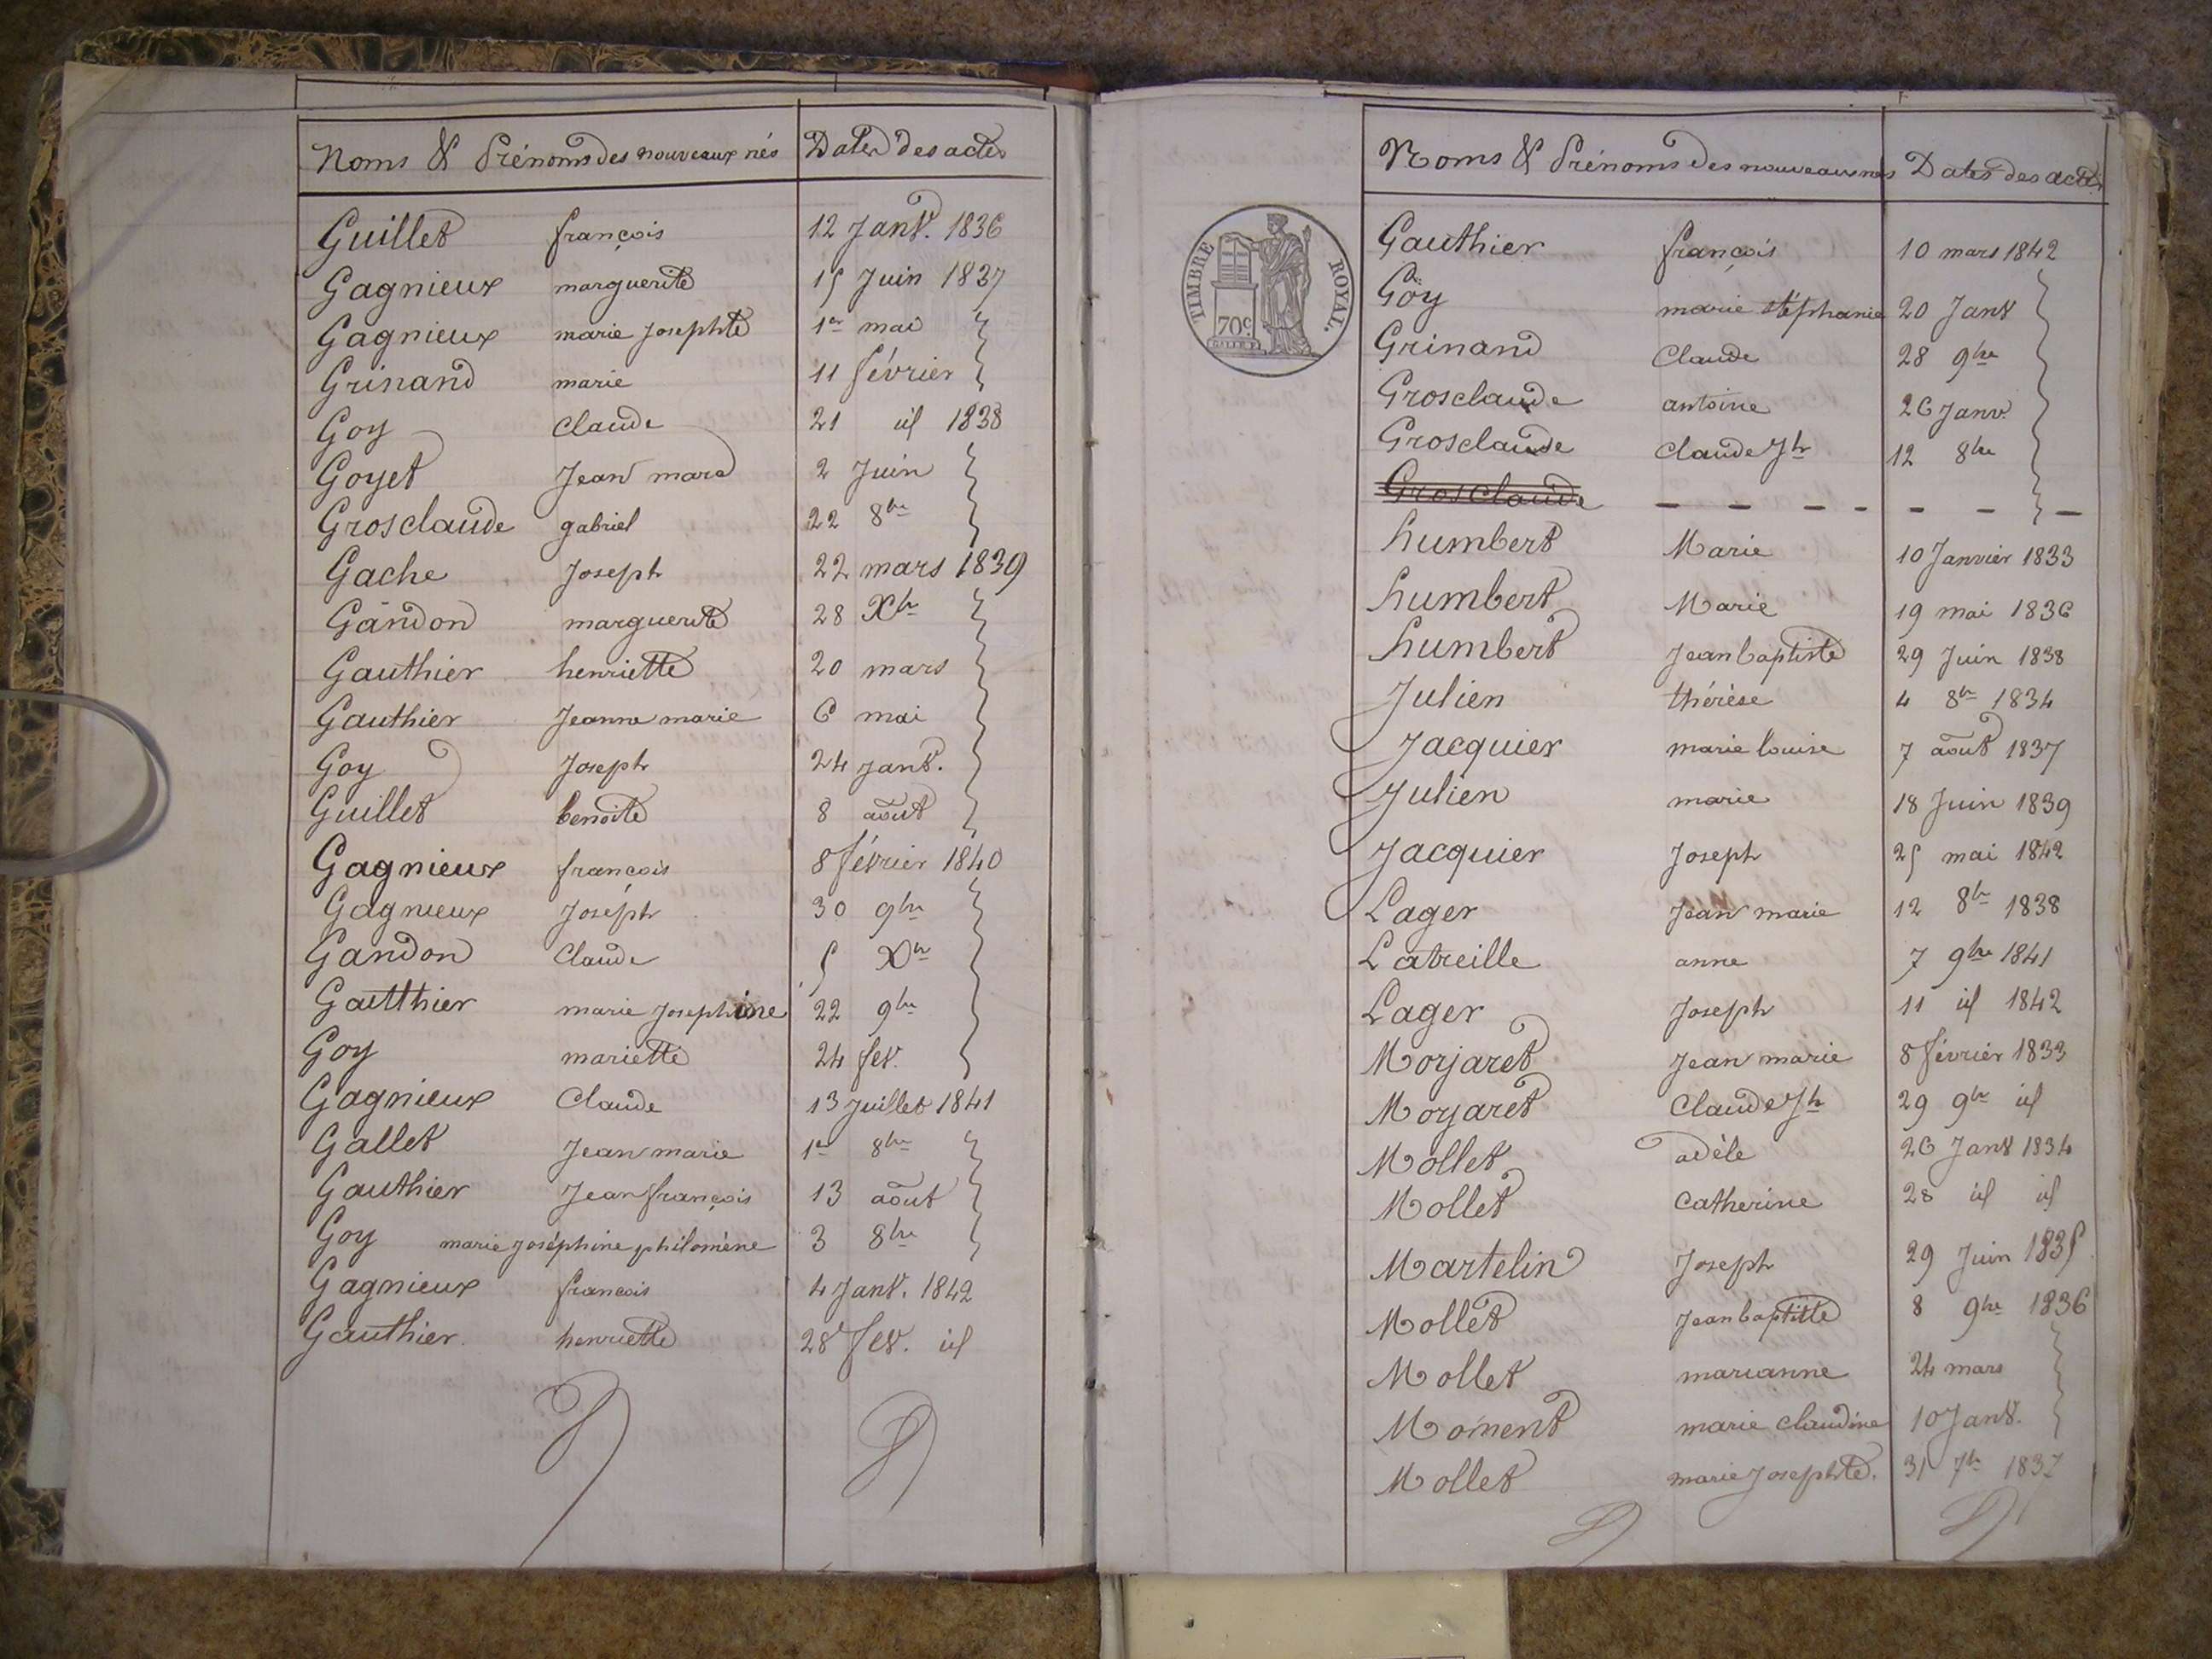 Noms & Prénoms des nouveaux nés Dates des actes
Guillet françois 12 Janv. 1836
Gagnieux marguerite 15 Juin 1837
Gagnieux marie Josephte 1er mai
Grinand marie 11 février
Goy Claude 21 id 1838
Goyet Jean marc 2 Juin
Grosclaude gabriel 22 8bre
Gache Joseph 22 mars 1839
Gandon marguerite 28 Xbre
Gauthier henriette 20 mars
Gauthier Jeanne marie 6 mai
Goy Joseph 24 Janv.
Guillet benoite 8 août
Gagnieux françois 8 février 1840
Gagnieux Joseph 30 9bre
Gandon Claude 5 Xbre
Gautthier marie Josephine 22 9bre
Goy mariette 24 fev.
Gagnieux Claude 13 Juillet 1841
Gallet Jean marie 1er 8bre
Gauthier Jean françois 13 août
Goy marie Joséphine philomène 3 8bre
Gagnieux francois 4 Janv. 1842
Gauthier henriette 28 fev. id
Noms & Prénoms des nouveaux nés Dates des actes
TIMBRE ROYAL.
70c
Gauthier françois 10 mars 1842
Goy marie stéphanie 20 Janv
Grinand Claude 28 9bre
Grosclaude antoine 26 Janv.
Grosclaude Claude Jh 12 8bre
Grosclaude - - - - - - -
humbert Marie 10 Janvier 1833
humbert Marie 19 mai 1836
humbert Jean baptiste 29 Juin 1838
Julien thérèse 4 8bre 1834
Jacquier marie louise 7 août 1837
Julien marie 18 Juin 1839
Jacquier Joseph 25 mai 1842
Lager Jean marie 12 8bre 1838
Latreille anne 7 9bre 1841
Lager Joseph 11 id 1842
Morjaret Jean marie 8 février 1833
Morjaret Claude Jh 29 9bre id
Mollet adèle 26 Janv 1834
Mollet Catherine 28 id id
Martelin Joseph 29 Juin 1835
Mollet Jean baptiste 8 9bre 1836
Mollet marianne 24 mars
Moment marie claudine 10 Janv.
Mollet marie Josephte. 31 7bre 1837